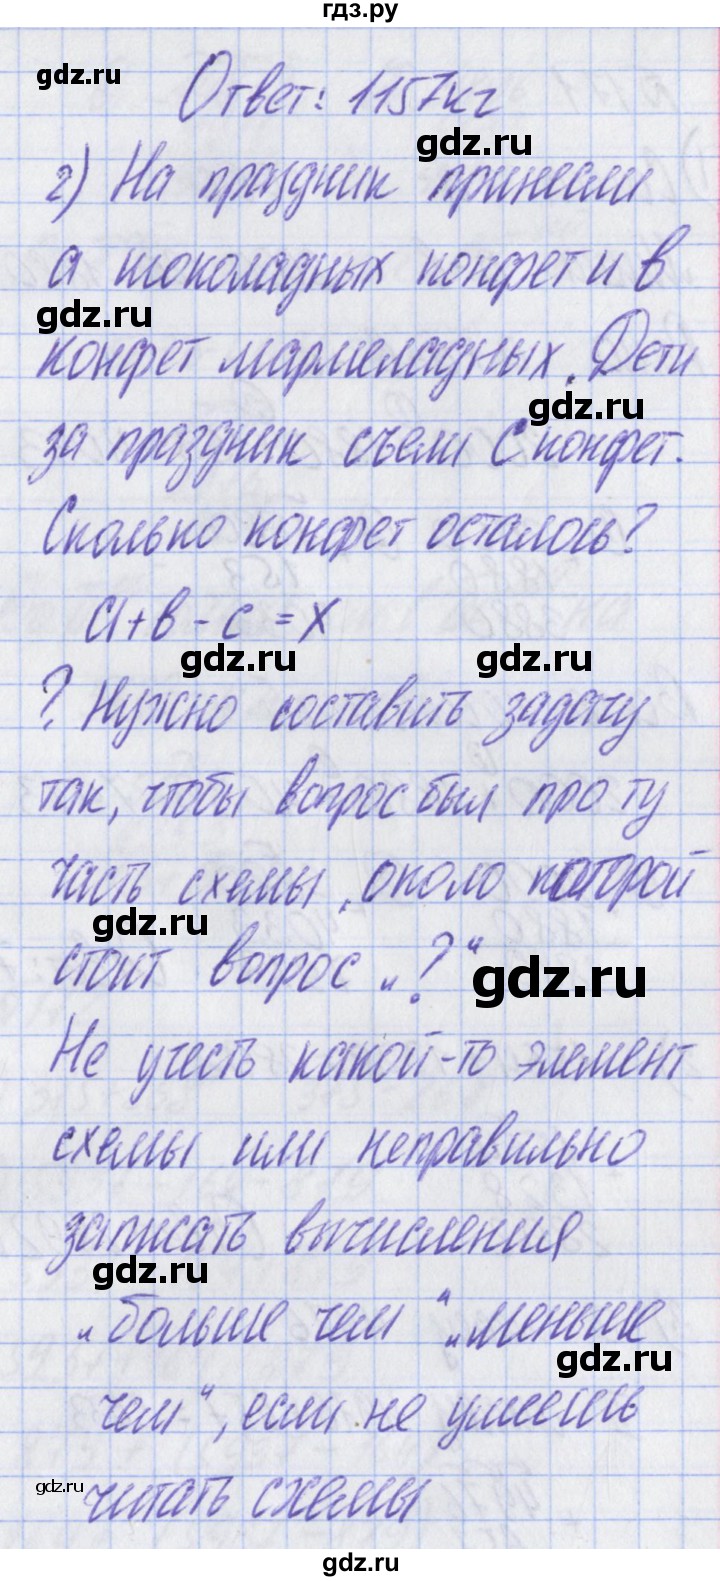 гдз.ру
gdz.ru
Ответ: 1157кг
gdz.ru
г) На праздник принесли
а шоколадных конфет и в
gdz.ru
конфет мармеладных. Дети
gdz.ru
за праздник съели С конфет.
Сколько конфет осталось?
а+в-с=х
gdz.ru gdz.ru
? Нужно составить задачу
так, чтобы вопрос был про ту
часть схемы, около которой
gdz.ru
стоит вопрос „?“
gdz.ru
Не учесть какой-то элемент
схемы или неправильно
записать вычисления
gdz.ru
„больше чем“ „меньше
gdz.ru
чем“, если не умеешь
gdz.ru
читать схемы
gdz.ru